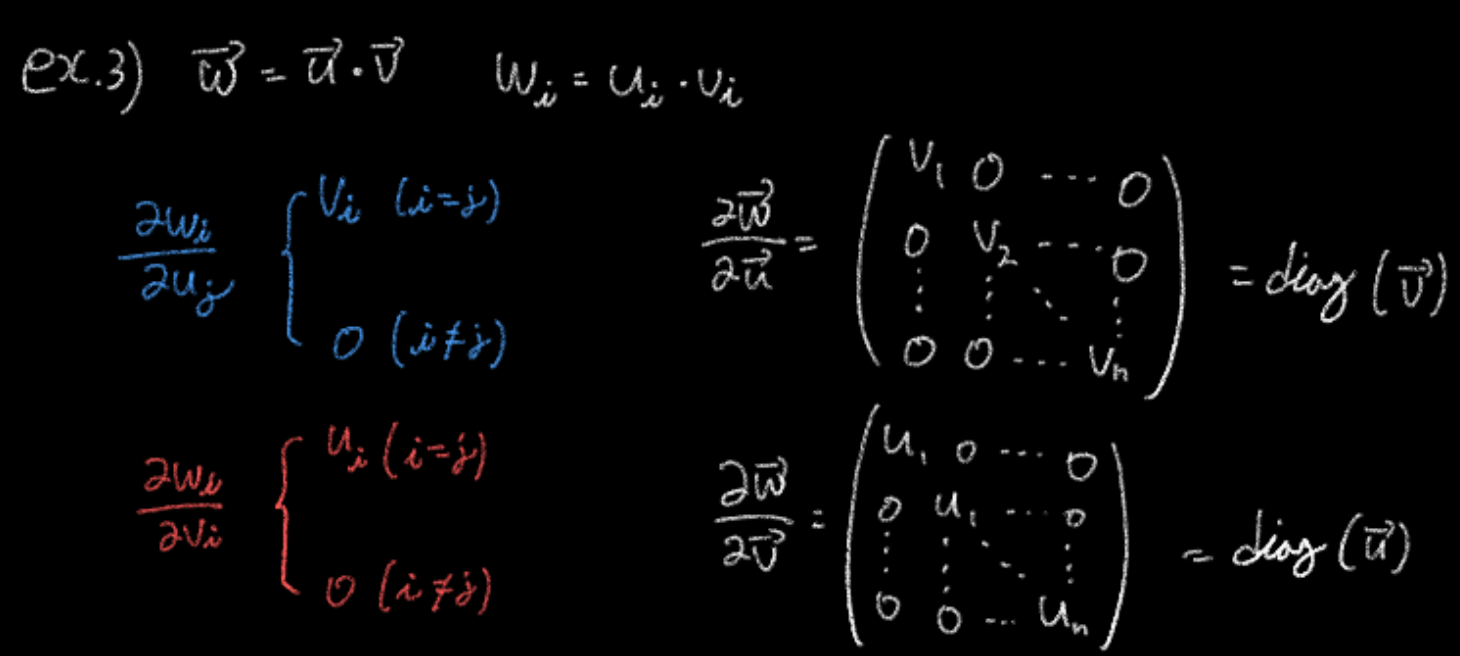 ex.3) w⃗ = u⃗ · v⃗   wᵢ = uᵢ · vᵢ
∂wᵢ/∂uⱼ { vᵢ (i=j)
0 (i≠j)
∂w⃗/∂u⃗ = ( v₁ 0 ---- 0
0 v₂ ---- 0
⋮ ⋮ ⋱ ⋮
0 0 ---- vₙ ) = diag (v⃗)
∂wᵢ/∂vᵢ { uᵢ (i=j)
0 (i≠j)
∂w⃗/∂v⃗ = ( u₁ 0 ---- 0
0 u₁ ---- 0
⋮ ⋮ ⋱ ⋮
0 0 --- uₙ ) = diag (u⃗)